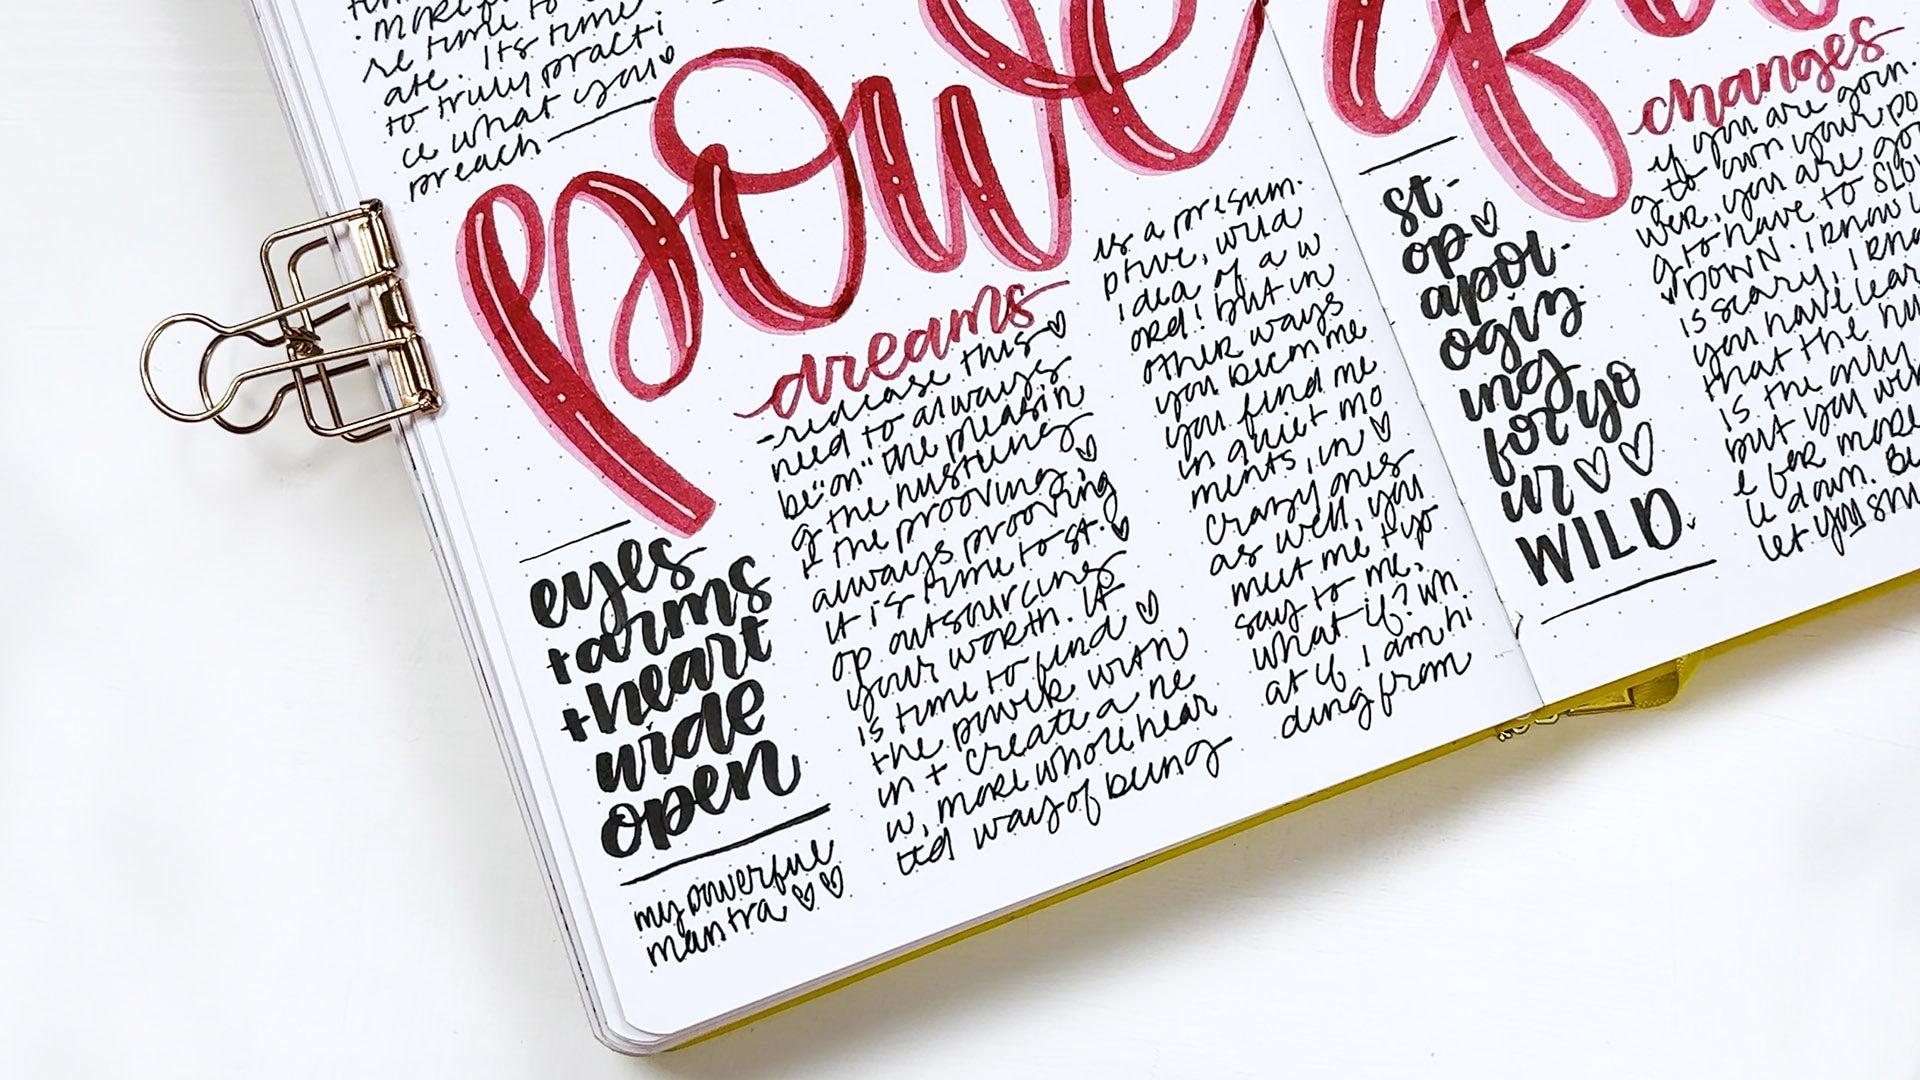 more
re time to
ate. Its time
to truly practi
ce what you
preach
powe
eyes
+arms
+heart
wide
open
my powerful
mantra
dreams
-release this
need to always
be "on" the pleasin
g the hustling
+ the prooving
always prooving
it is time to st.
op outsourcing
your worth. It
is time to find
the power with
in + create a ne
w, more whole hear
ted way of being
is a presum.
ptive, wild
idea of a w
ord! but in
other ways
you become
you find me
in quiet mo
ments, in
crazy ones
as well, you
meet me + yo
say to me,
what if? wh
at if I am hi
ding from
st-
op
apol-
ogiz
ing
for yo
ur
WILD.
changes
if you are goin.
g to own your po
wer, you are go
g to have to SLO
DOWN. I know
is scary, I kno
you have lear
that the
is the only
but you wer
e for more
le down. Be
let you